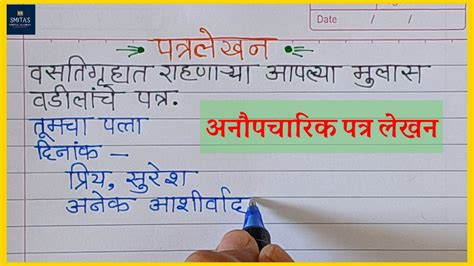 SMITA'S
Date :
पत्रलेखन
वसतिगृहात राहणाऱ्या आपल्या मुलास
वडीलांचे पत्र.
तूमचा पत्ता
दिनांक –
अनौपचारिक पत्र लेखन
प्रिय, सुरेश
अनेक आशीर्वाद